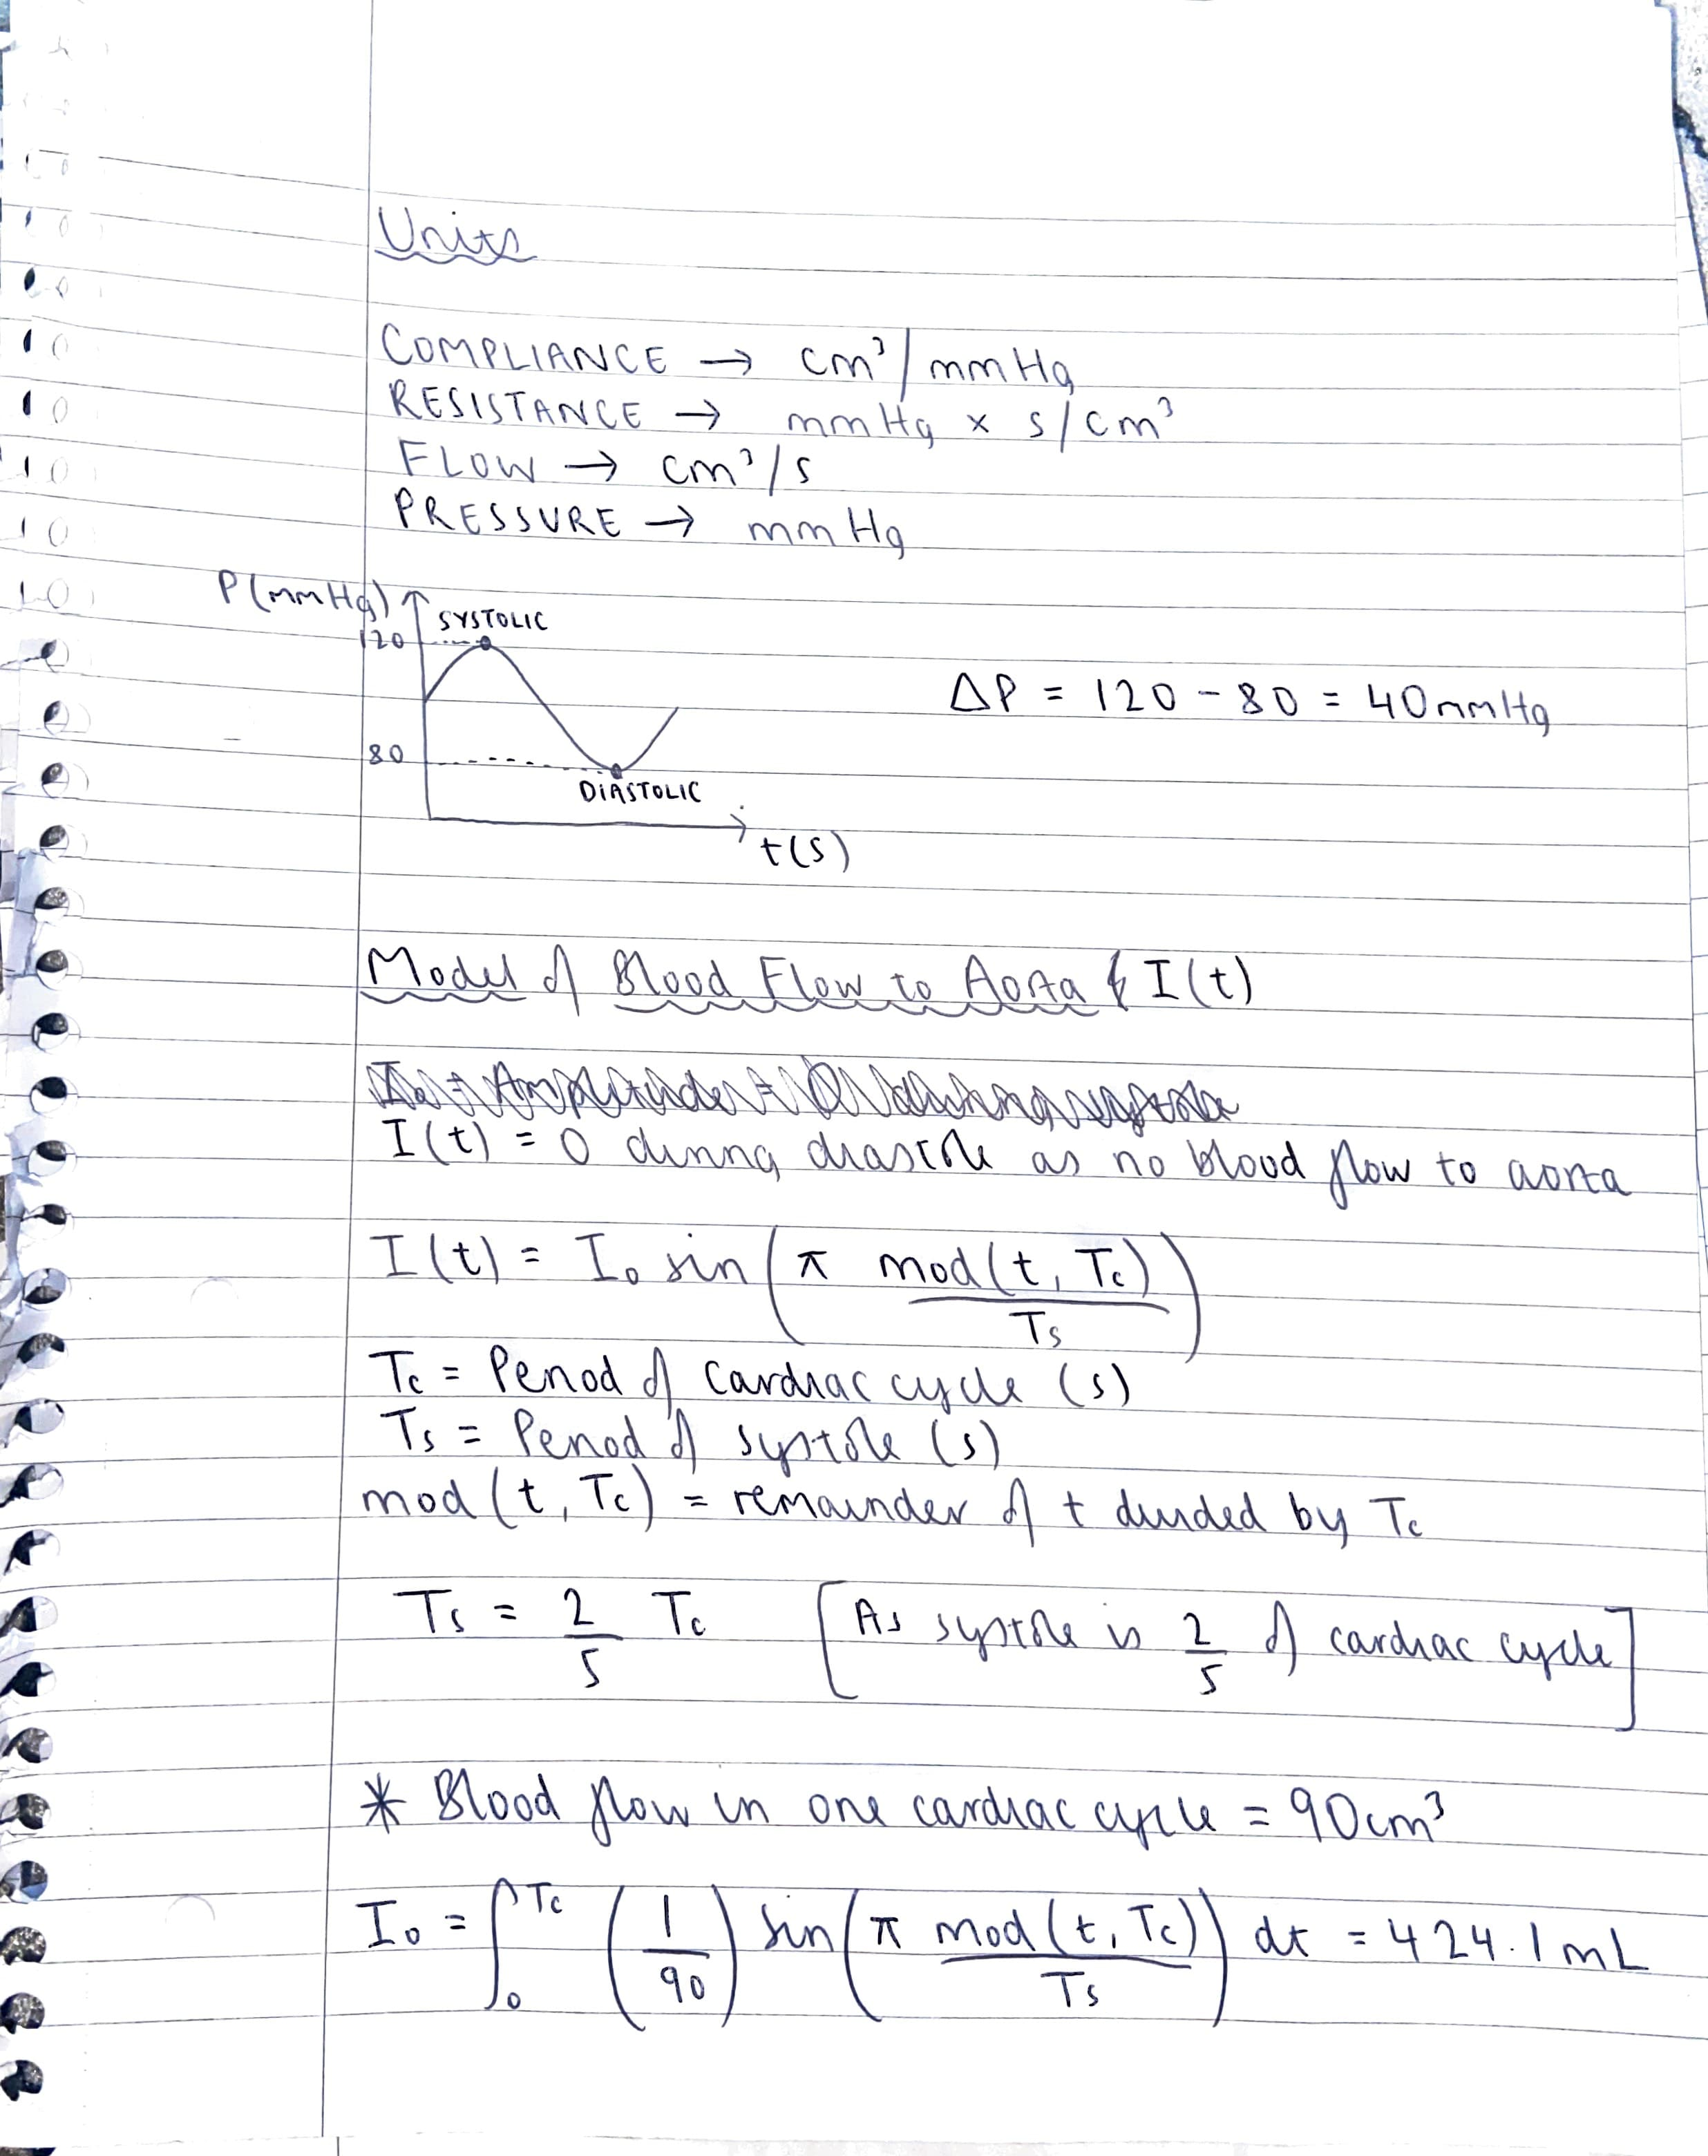 Units
COMPLIANCE → cm³/mmHg
RESISTANCE → mmHg × s/cm³
FLOW → cm³/s
PRESSURE → mmHg
P(mmHg)
SYSTOLIC
120
ΔP = 120 - 80 = 40mmHg
80
DIASTOLIC
t(s)
Model of Blood Flow to Aorta & I(t)
I(t) = 0 during diastole as no blood flow to aorta
I(t) = I₀ sin(π mod(t, Tc)/Ts)
Tc = Period of cardiac cycle (s)
Ts = Period of systole (s)
mod(t, Tc) = remainder of t divided by Tc
Ts = 2/5 Tc [As systole is 2/5 of cardiac cycle]
* Blood flow in one cardiac cycle = 90cm³
I₀ = ∫₀^Tc (1/90) sin(π mod(t, Tc)/Ts) dt = 424.1mL